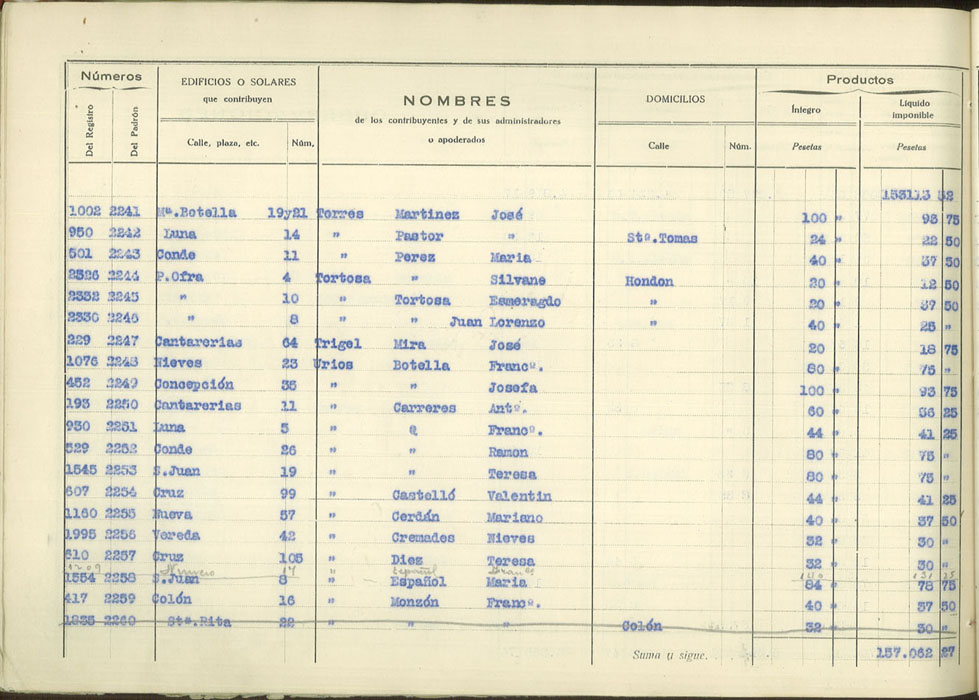 Números EDIFICIOS O SOLARES que contribuyen NOMBRES de los contribuyentes y de sus administradores o apoderados DOMICILIOS Productos
Del Registro Del Padrón Calle, plaza, etc. Núm. Calle Núm. Íntegro Pesetas Líquido imponible Pesetas
153113 52
1002 2241 Mª.Botella 19y21 Torres Martinez José 100 " 93 75
950 2242 Luna 14 " Pastor " Stº.Tomas 24 " 22 50
501 2243 Conde 11 " Perez Maria 40 " 37 50
2326 2244 P.Ofra 4 Tortosa " Silvane Hondon 20 " 12 50
2332 2245 " 10 " Tortosa Esmeragdo " 20 " 37 50
2330 2246 " 8 " " Juan Lorenzo " 40 " 25 "
229 2247 Cantarerias 64 Trigel Mira José 20 18 75
1076 2248 Nieves 23 Urios Botella Francº. 80 " 75 "
452 2249 Concepción 35 " " Josefa 100 " 93 75
193 2250 Cantarerias 11 " Carreres Antº. 60 " 56 25
930 2251 Luna 5 " " Francº. 44 " 41 25
529 2252 Conde 26 " " Ramon 80 " 75 "
1545 2253 S.Juan 19 " " Teresa 80 " 75 "
607 2254 Cruz 99 " Castelló Valentin 44 " 41 25
1160 2255 Nueva 57 " Cerdán Mariano 40 " 37 50
1995 2256 Vereda 42 " Cremades Nieves 32 " 30 "
610 2257 Cruz 105 " Diez Teresa 32 " 30 "
1209 17 " Español
1554 2258 S.Juan 8 " Español Maria 84 " 78 75
417 2259 Colón 16 " Monzón Francº. 40 " 37 50
1835 2260 Stª.Rita 22 " " " Colón 32 " 30 "
Suma y sigue. 157.062 27